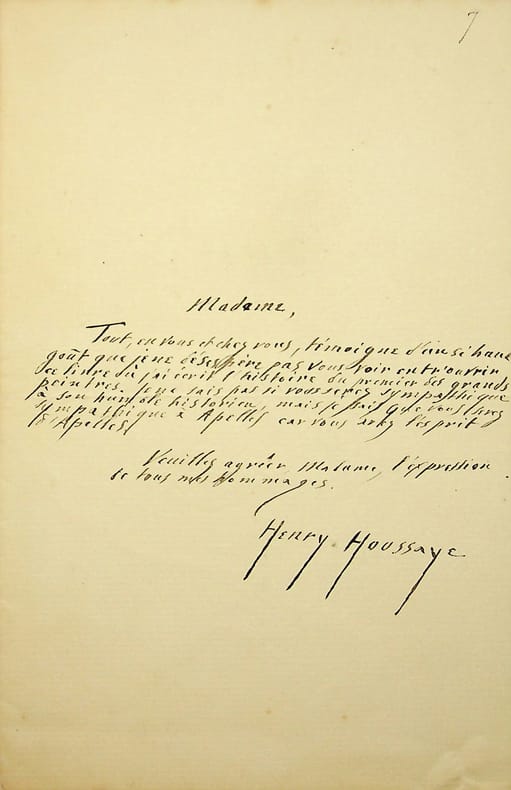 7
Madame,
Tout, en vous et chez vous, témoigne d'un si haut
goût que je ne désespère pas vous voir entr'ouvrir
ce livre où j'ai écrit l'histoire du premier des grands
peintres. Je ne sais pas si vous serez sympathique
à son humble historien, mais je sais que vous serez
sympathique à Apelles car vous avez l'esprit
d'Apelles.
Veuillez agréer, Madame, l'expression
de tous mes hommages.
Henry Houssaye